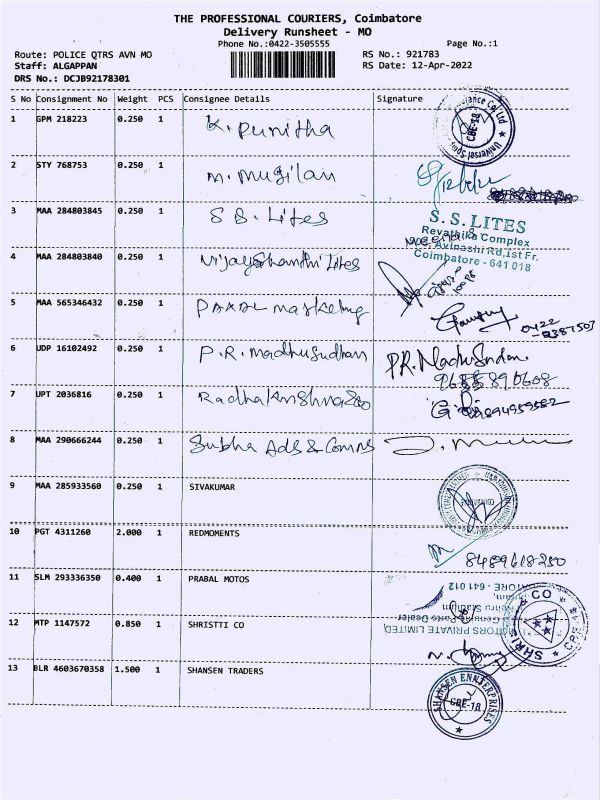 THE PROFESSIONAL COURIERS, Coimbatore
Delivery Runsheet - MO
Phone No.:0422-3505555
Page No.:1
Route: POLICE QTRS AVN MO
RS No.: 921783
Staff: ALGAPPAN
RS Date: 12-Apr-2022
DRS No.: DCJB92178301
S No Consignment No Weight PCS Consignee Details Signature
1 GPM 218223 0.250 1 K. Punitha
CBE-18
2 STY 768753 0.250 1 M. Mugilan
3 MAA 284803845 0.250 1 S S. Lites
S.S. LITES
Revathika Complex
Avinashi Rd, 1st Fr.
Coimbatore - 641 018
4 MAA 284803840 0.250 1 Vijayshanthi Lites
5 MAA 565346432 0.250 1 marketing
0422
6 UDP 16102492 0.250 1 P.R. Madhusudhan PR. Madhusudan
7 UPT 2036816 0.250 1
8 MAA 290666244 0.250 1 Subha Ads & Comns
9 MAA 285933560 0.250 1 SIVAKUMAR
10 PGT 4311260 2.000 1 REDMOMENTS
8489618250
11 SLM 293336350 0.400 1 PRABAL MOTOS
641 012
Parts Dealer
PRIVATE LIMITED,
12 MTP 1147572 0.850 1 SHRISTTI CO
13 BLR 4603670358 1.500 1 SHANSEN TRADERS
SHANSEN ENNTERPRISES
CBE-18